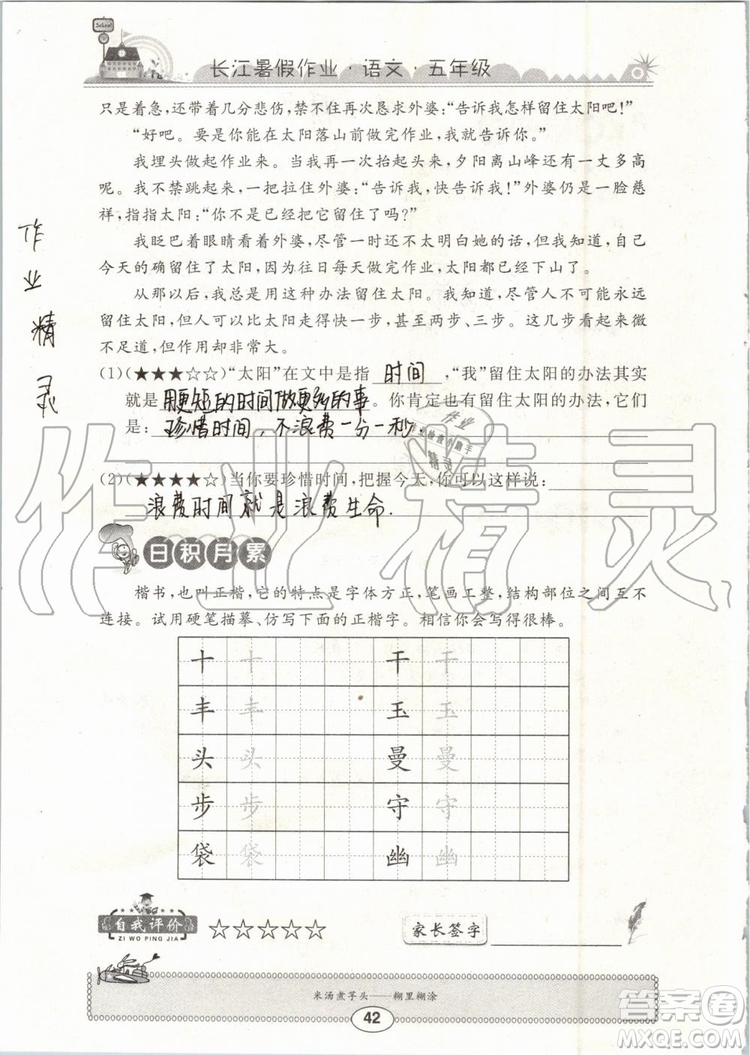 School
长江暑假作业·语文·五年级
只是着急，还带着几分悲伤，禁不住再次恳求外婆：“告诉我怎样留住太阳吧！”
“好吧。要是你能在太阳落山前做完作业，我就告诉你。”
我埋头做起作业来。当我再一次抬起头来，夕阳离山峰还有一丈多高
呢。我不禁跳起来，一把拉住外婆：“告诉我，快告诉我！”外婆仍是一脸慈
祥，指指太阳：“你不是已经把它留住了吗？”
我眨巴着眼睛看着外婆，尽管一时还不太明白她的话，但我知道，自己
今天的确留住了太阳，因为往日每天做完作业，太阳都已经下山了。
从那以后，我总是用这种办法留住太阳。我知道，尽管人不可能永远
留住太阳，但人可以比太阳走得快一步，甚至两步、三步。这步数看起来微
不足道，但作用却非常大。
(1)(★★★☆☆)“太阳”在文中是指 时间 ，“我”留住太阳的办法其实
就是用更短的时间做更多的事。你肯定也有留住太阳的办法，它们
是：珍惜时间，不浪费一分一秒.
(2)(★★★★☆)当你要珍惜时间，把握今天，你可以这样说：
浪费时间就是浪费生命.
作业精灵
作业精灵
日积月累
楷书，也叫正楷，它的特点是字体方正，笔画工整，结构部位之间互不
连接。试用硬笔描摹、仿写下面的正楷字。相信你会写得很棒。
十 十 干 干
丰 丰 玉 玉
头 头 曼 曼
步 步 守 守
袋 袋 幽 幽
自我评价
ZI WO PING JIA
☆☆☆☆☆
家长签字
米汤煮芋头——糊里糊涂
42
答案圈
MXQE.COM